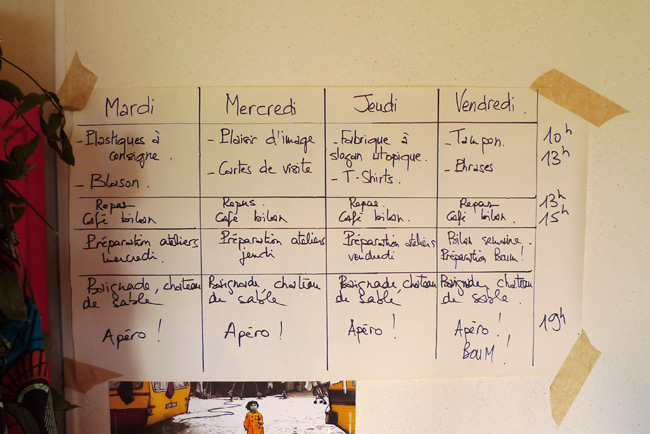 Mardi
Mercredi
Jeudi
Vendredi.
- Plastiques à
consigne.
- Blason.
- Plaisir d'image
- Cartes de visite
- Fabrique à
slogan utopique.
- T-Shirts.
- Tampon.
- Phrases
10h
13h
Repas
Café bilan
Repas.
Café bilan
Repas.
Café bilan.
Repas
Café bilan.
13h
15h
Préparation ateliers
mercredi.
Préparation ateliers
jeudi
Préparation ateliers
vendredi
Bilan semaine.
Préparation Boum!
Baignade, chateau
de sable
Baignade, chateau
de sable
Baignade, chateau
de sable
Baignade, chateau
de sable.
Apéro !
Apéro !
Apéro !
Apéro !
BOUM !
19h